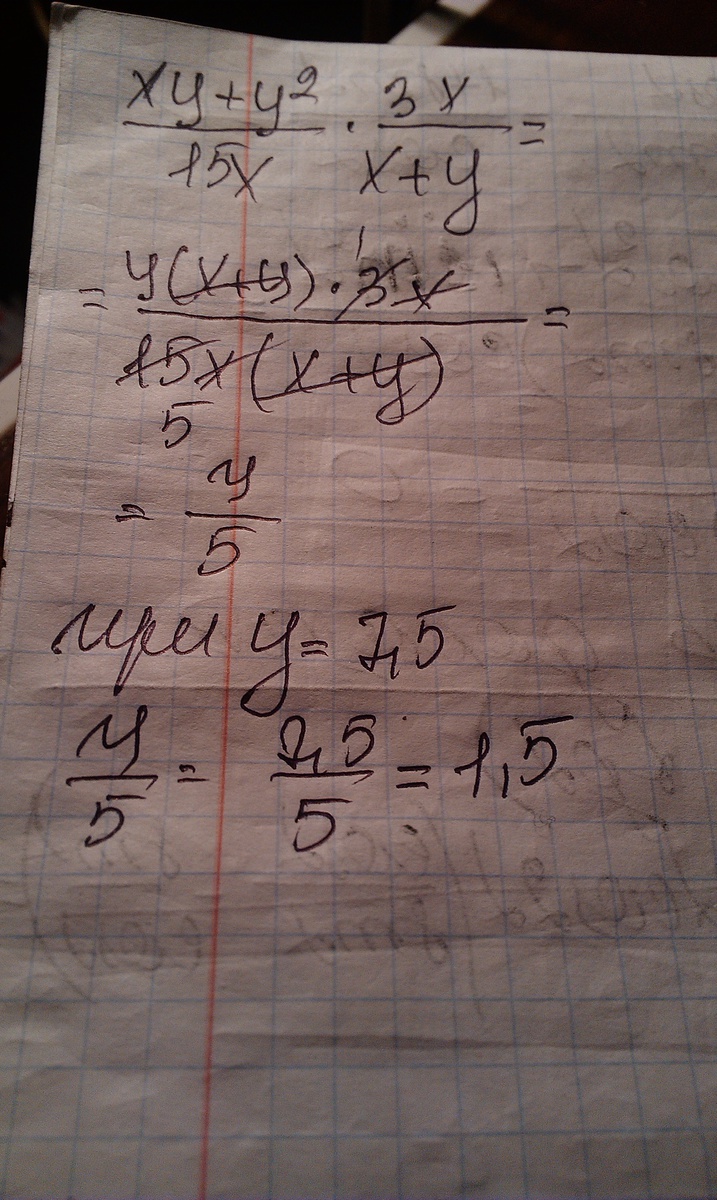 (xy+y²)/(15x) · (3x)/(x+y) =
= (y(x+y) · 3x)/(15x(x+y)) =
1
5
= y/5
при y = 7,5
y/5 = 7,5/5 = 1,5